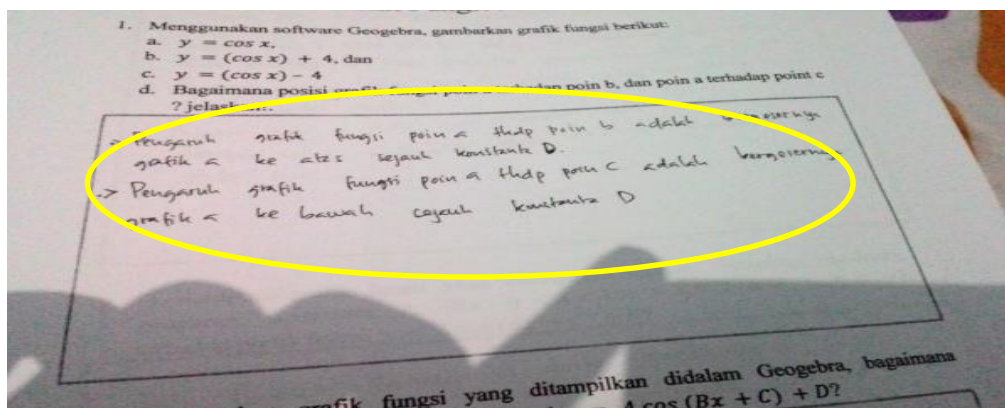 1. Menggunakan software Geogebra, gambarkan grafik fungsi berikut:
a. y = cos x,
b. y = (cos x) + 4, dan
c. y = (cos x) − 4
d. Bagaimana posisi grafik fungsi poin a terhadap poin b, dan poin a terhadap point c
? jelaskan!
-> Pengaruh grafik fungsi poin a thdp poin b adalah bergesernya
grafik a ke atas sejauh konstanta D.
-> Pengaruh grafik fungsi poin a thdp poin c adalah bergesernya
grafik a ke bawah sejauh konstanta D
grafik fungsi yang ditampilkan didalam Geogebra, bagaimana
A cos (Bx + C) + D?